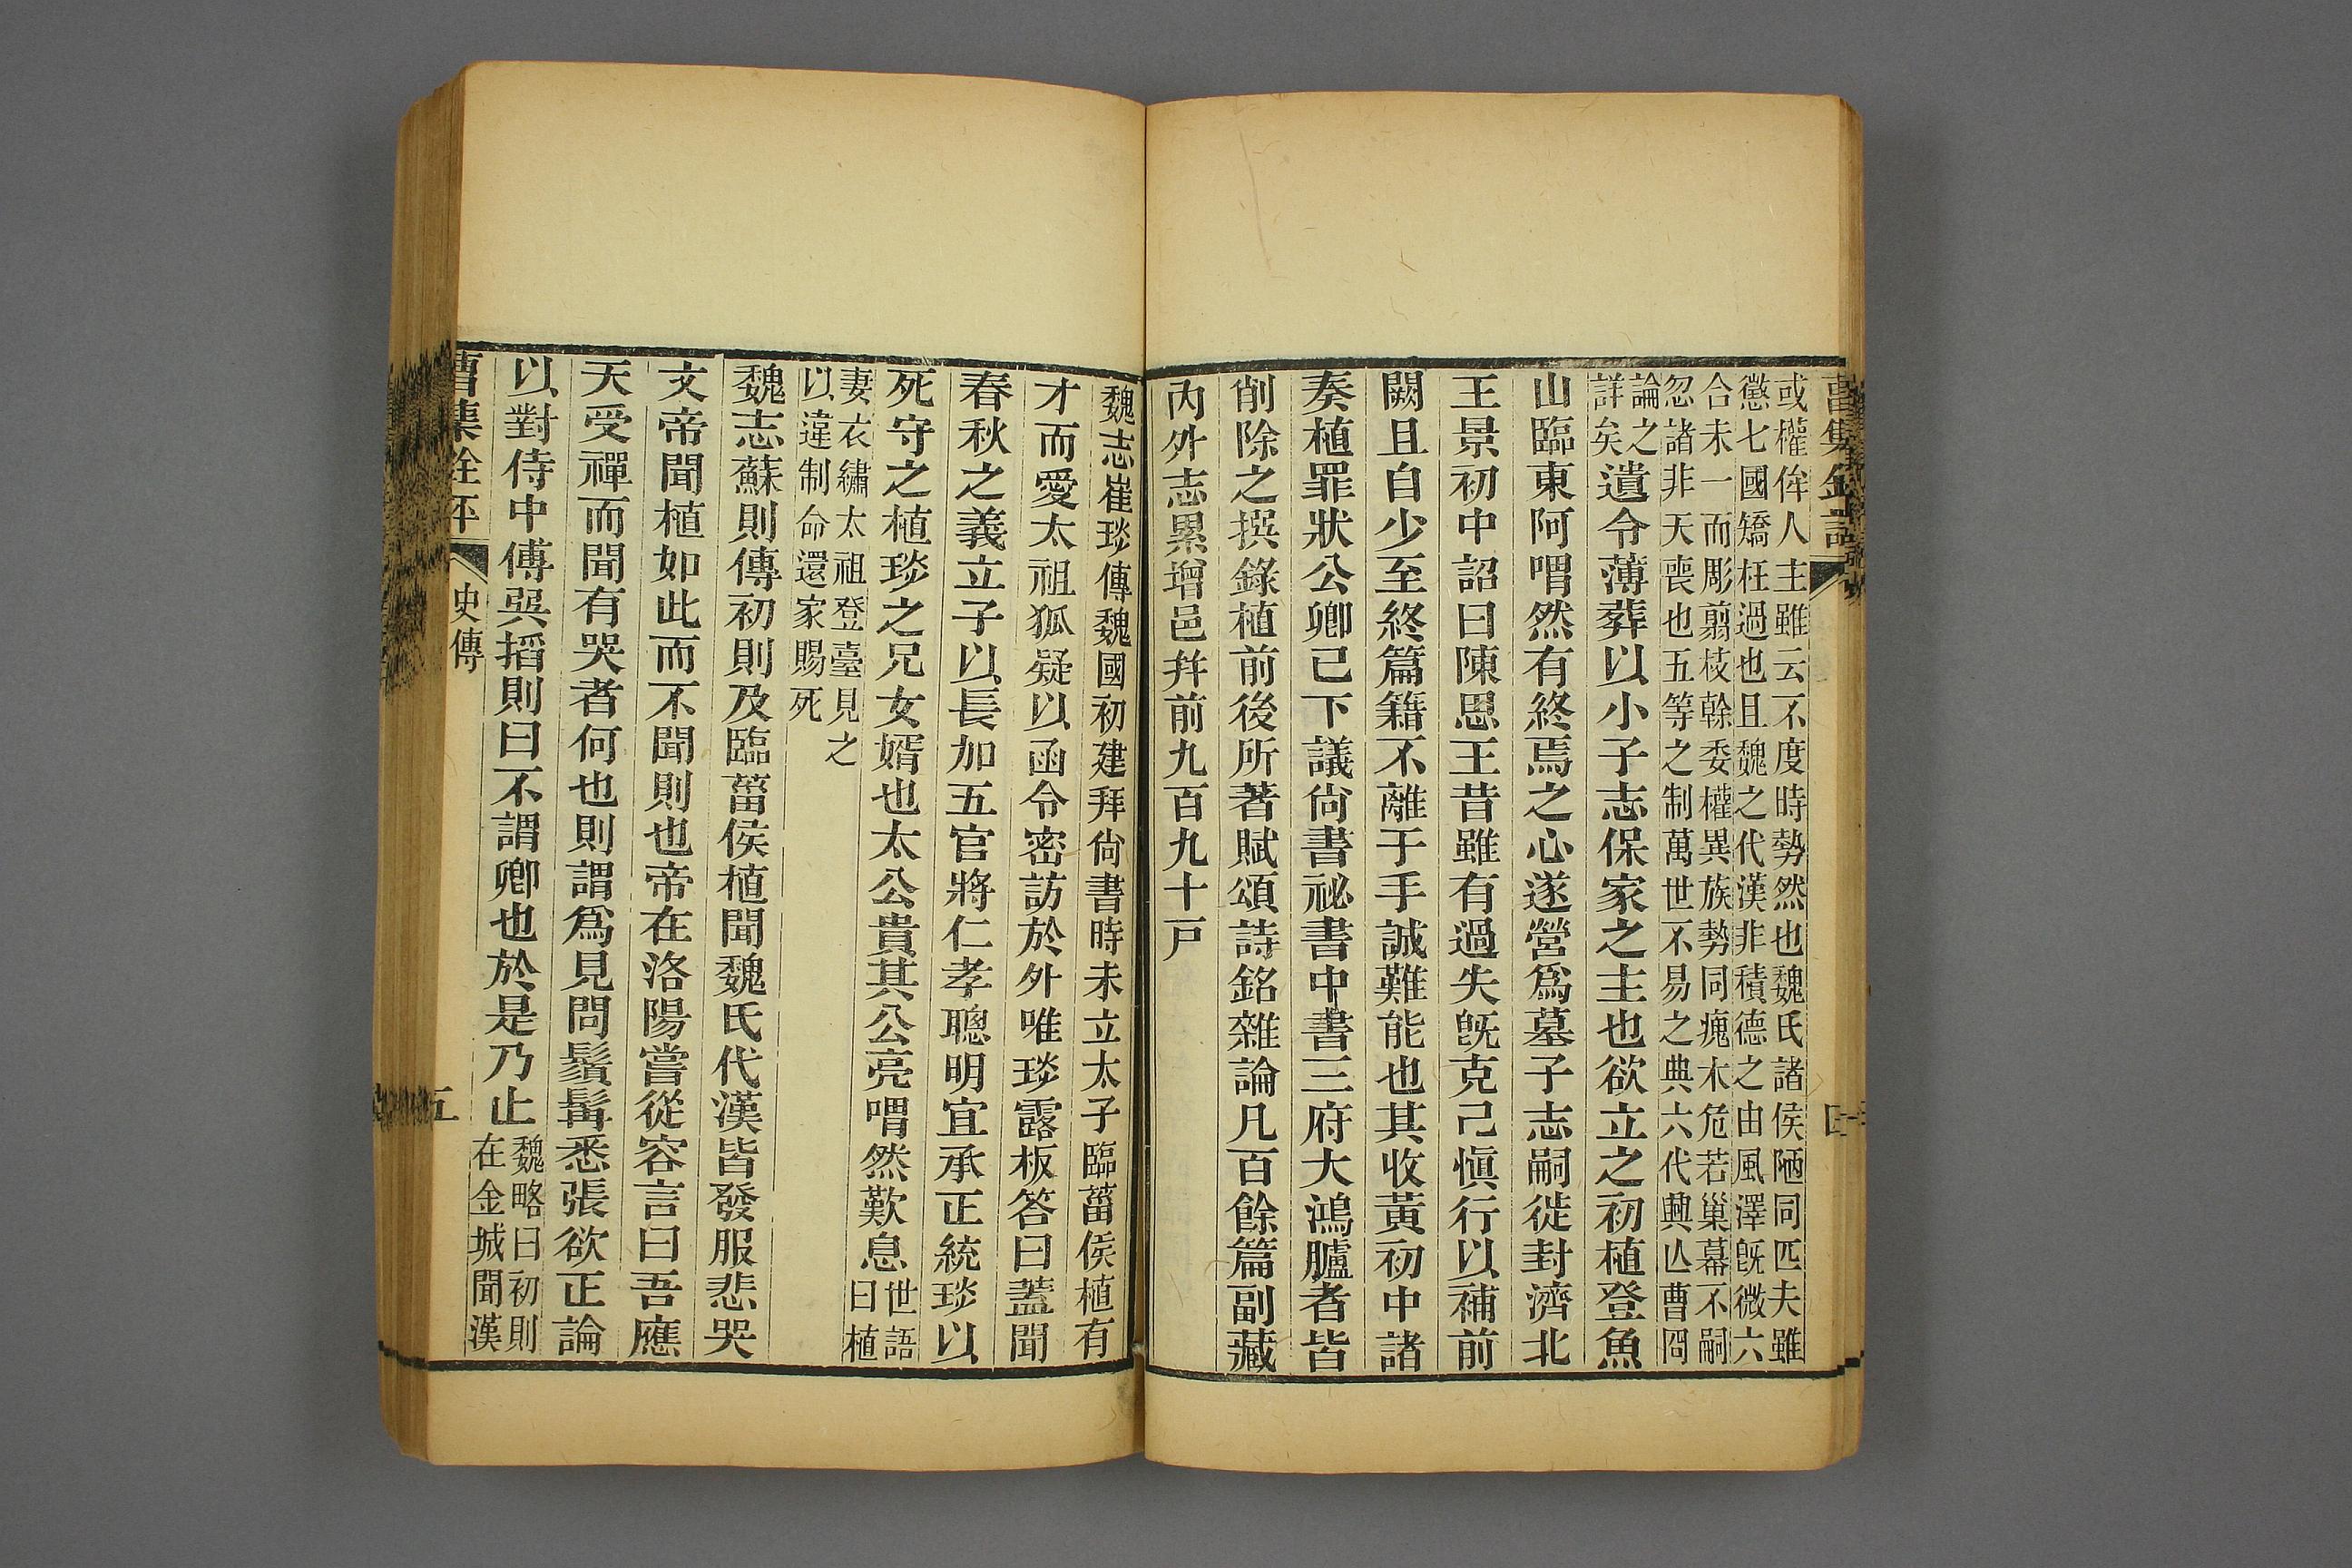 曹集
或權侔人主雖云不度時勢然也魏氏諸侯陋同匹夫雖
懲七國矯枉過也且魏之代漢非積德之由風澤旣微六
合未一而彫翦枝幹委權異族勢同瘣木危若巢幕不嗣
忽諸非天喪也五等之制萬世不易之典六代興亾曹冏
論之
詳矣
遺令薄葬以小子志保家之主也欲立之初植登魚
山臨東阿喟然有終焉之心遂營爲墓子志嗣徙封濟北
王景初中詔曰陳思王昔雖有過失旣克己愼行以補前
闕且自少至終篇籍不離于手誠難能也其收黃初中諸
奏植罪狀公卿已下議尙書祕書中書三府大鴻臚者皆
削除之撰錄植前後所著賦頌詩銘雜論凡百餘篇副藏
內外志累增邑幷前九百九十戸
魏志崔琰傳魏國初建拜尙書時未立太子臨菑侯植有
才而愛太祖狐疑以函令密訪於外唯琰露板答曰蓋聞
春秋之義立子以長加五官將仁孝聰明宜承正統琰以
死守之植琰之兄女婿也太公貴其公亮喟然歎息
世語
曰植
妻衣繡太祖登臺見之
以違制命還家賜死
魏志蘇則傳初則及臨菑侯植聞魏氏代漢皆發服悲哭
文帝聞植如此而不聞則也帝在洛陽嘗從容言曰吾應
天受禪而聞有哭者何也則謂爲見問鬚髯悉張欲正論
以對侍中傅巽搯則曰不謂卿也於是乃止
魏略曰初則
在金城聞漢
曹集銓平
史傳
五